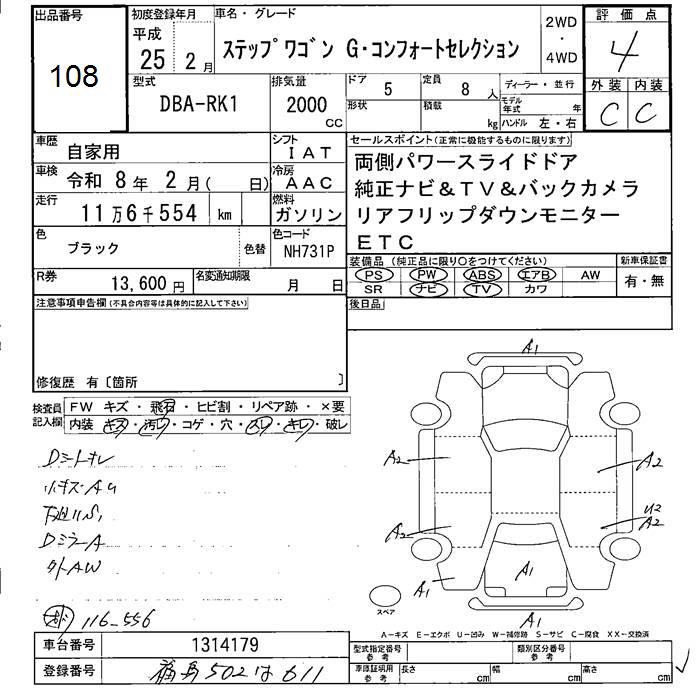 出品番号
108
初度登録年月
平成
25 2月
車名・グレード
ステップワゴン G・コンフォートセレクション
2WD
・
4WD
評価点
4
外装 内装
C C
型式
DBA-RK1
排気量
2000
CC
ドア
5
定員
8人
形状
積載
kg
ディーラー・並行
モデル年式
年
ハンドル 左・右
車歴
自家用
シフト
IAT
車検
令和 8年 2月( 日)
冷房
AAC
走行
11万6千554 km
燃料
ガソリン
色
ブラック
色替
色コード
NH731P
R券
13,600円
名変通知期限
月 日
セールスポイント(正常に機能するものに限ります)
両側パワースライドドア
純正ナビ&TV&バックカメラ
リアフリップダウンモニター
ETC
装備品 (純正品に限り○をつけてください)
新車保証書
PS PW ABS エアB AW
有・無
SR ナビ TV カワ
後日品
注意事項申告欄(不具合内容等は具体的に記入して下さい)
修復歴 有〔箇所 〕
検査員記入欄
FW キズ・飛石・ヒビ割・リペア跡・×要
内装 キズ・汚レ・コゲ・穴・スレ・キレ・破レ
Dシートキレ
小キズAU
下廻りS1
DミラーA
外AW
116-556
A1
A2
A2
U2
A2
A2
A1
A1
A1
スペア
A-キズ E-エクボ U-凹み W-補修跡 S-サビ C-腐食 XX-交換済
車台番号
1314179
登録番号
福島502は611
型式指定番号
参考
類別区分番号
参考
車庫証明用
参考
長さ
cm
幅
cm
高さ
cm